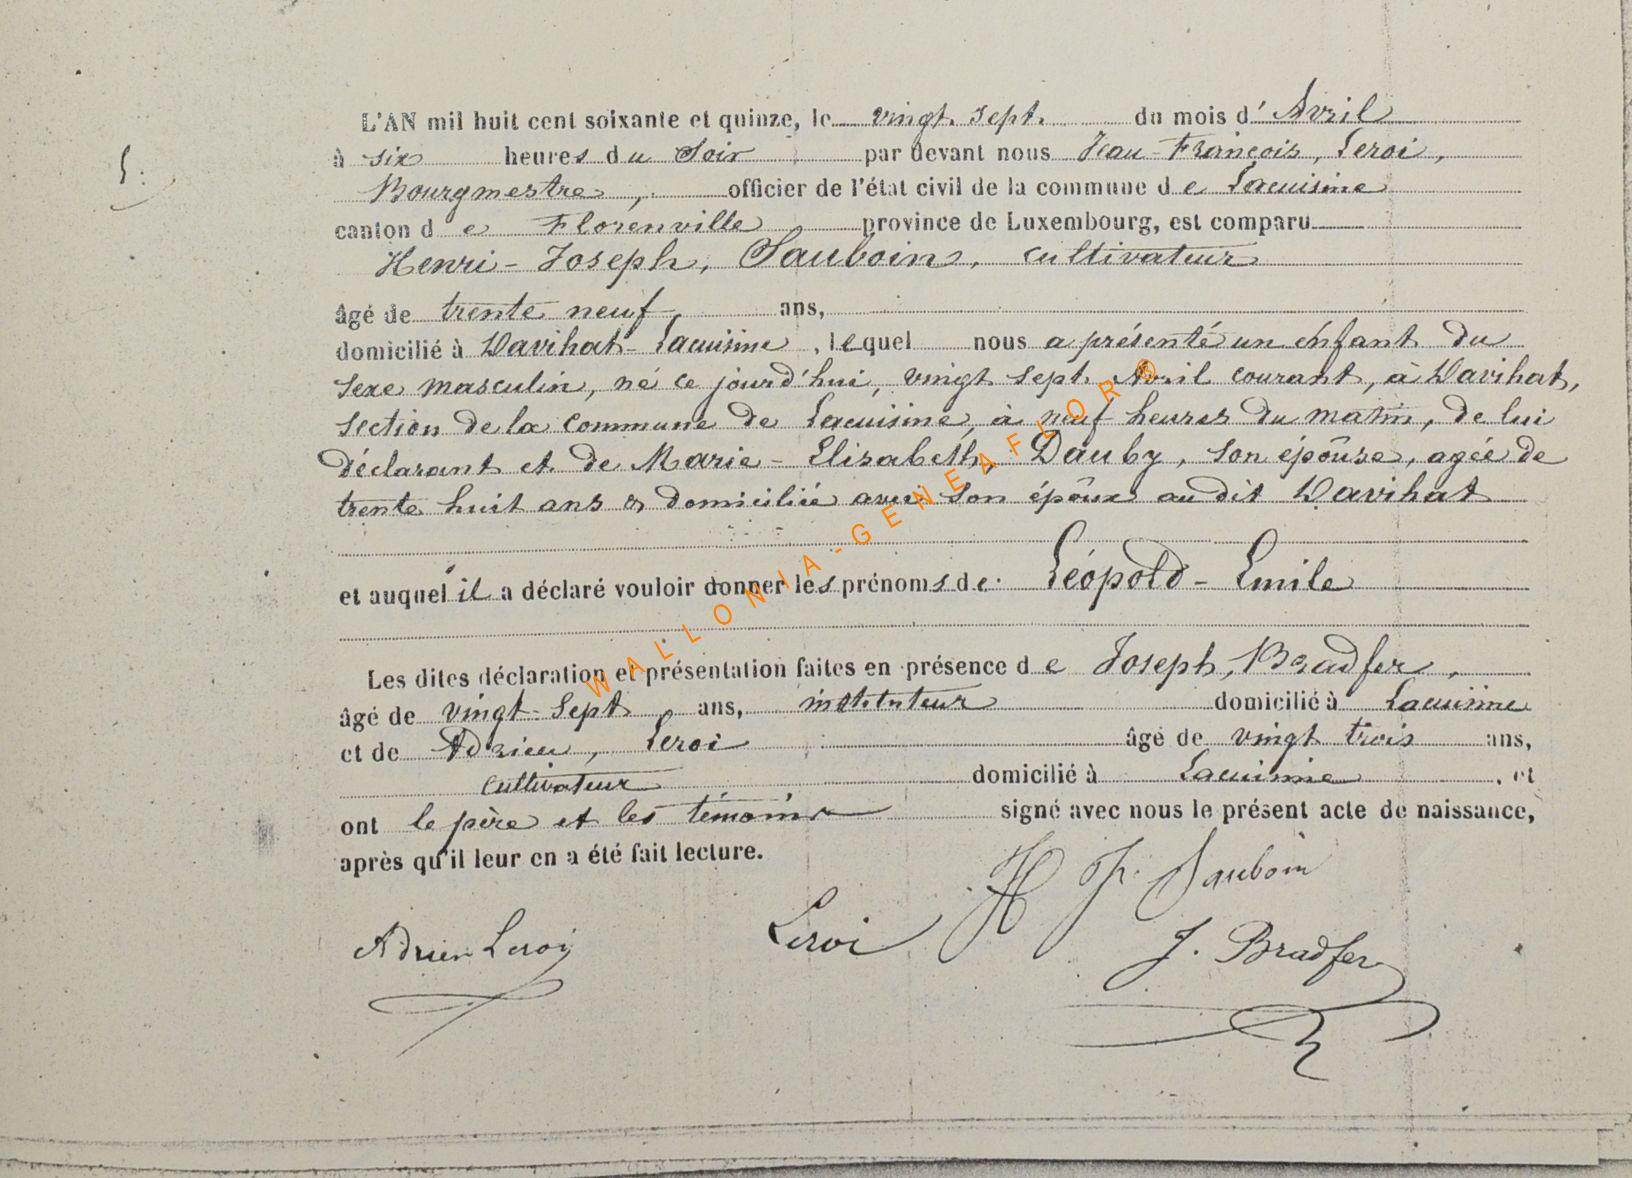 5.
L'AN mil huit cent soixante et quinze, le vingt-sept. du mois d' Avril
à six heures du Soir par devant nous Jean-François, Leroi,
Bourgmestre, officier de l'état civil de la commune de Lacuisine
canton de Florenville province de Luxembourg, est comparu
Henri-Joseph, Sauboin, cultivateur
âgé de trente neuf ans,
domicilié à Davihat-Lacuisine, lequel nous a présenté un enfant du
sexe masculin, né ce jourd'hui, vingt sept Avril courant, à Davihat,
section de la Commune de Lacuisine, à neuf heures du matin, de lui
déclarant et de Marie-Elisabeth, Dauby, son épouse, agée de
trente huit ans & domiciliée avec son époux au dit Davihat
et auquel il a déclaré vouloir donner les prénoms de: Léopold-Emile
Les dites déclaration et présentation faites en présence de Joseph, Bradfer,
âgé de vingt-sept ans, instituteur domicilié à Lacuisine
et de Adrien, Leroi âgé de vingt trois ans,
cultivateur domicilié à Lacuisine, et
ont le père et les témoins signé avec nous le présent acte de naissance,
après qu'il leur en a été fait lecture.
H Jh. Sauboin
Adrien Leroy Leroi J. Bradfer
WALLONIA-GENEAFLOR®